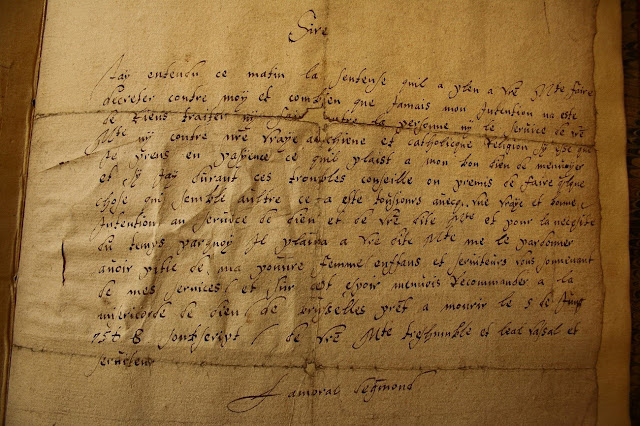 Sire
Jay entendu ce matin la sentense quil a pleu a vre Mte faire
decreter contre moy et combien que jamais mon intention na este
de riens traiter ny faire contre la personne ny le service de vre
Mte ny contre nre vraye anchiene et catholicque Religion sy esse que
je prens en pasyence ce quil plaist a mon bon dieu de menvoyer
et sy jay durant ces troubles conseille ou permis de faire
chose qui semble aultre ce a este tousjours avecq une vraye et bonne
intention au service de dieu et de vre dite Mte et pour la necesite
du temps parquoy je a vre dite Mte me le pardonner
avoir pitie de ma pouvre femme enffans et serviteurs vous souvenant
de mes services et sur cest espoir menvois Recommander a la
misericorde de dieu de bruxselles prest a mourir le 5 de
1568 de vre Mte treshumble et leal vasal et
serviteur
Lamoral degmond